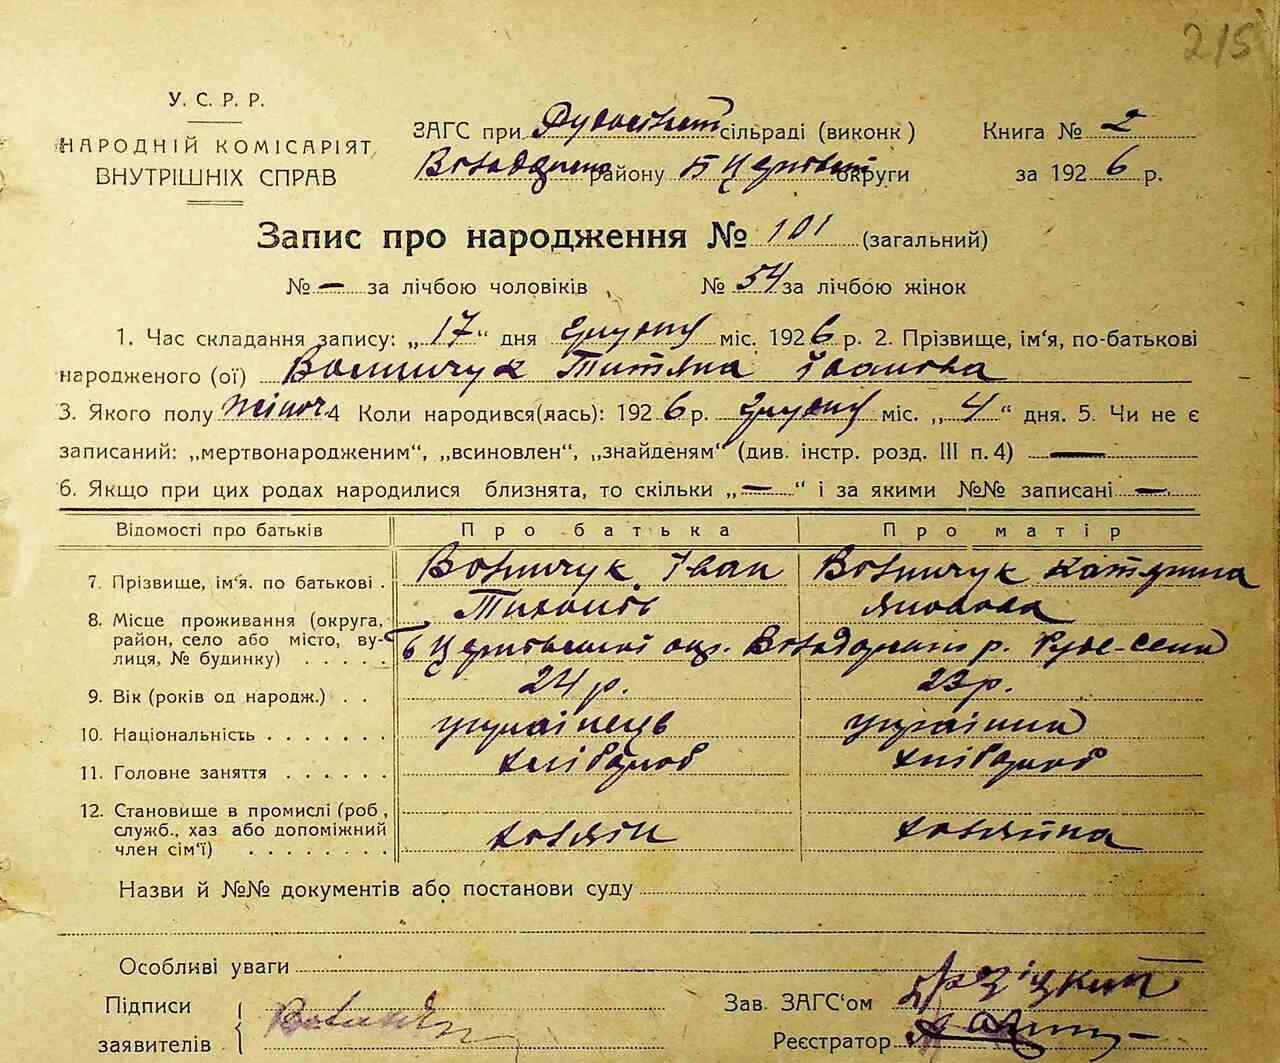 215
У. С. Р. Р.
НАРОДНІЙ КОМІСАРІЯТ
ВНУТРІШНІХ СПРАВ
ЗАГС при сільраді (виконк)
району Б Церківськ округи
Книга № 2
за 1926 р.
Запис про народження № 101 (загальний)
№ — за лічбою чоловіків № 54 за лічбою жінок
1. Час складання запису: „17“ дня грудня міс. 1926 р. 2. Прізвище, ім‘я, по-батькові
народженого (ої) Титяна Іванова
3. Якого полу жіноч. 4 Коли народився(лась): 1926 р. грудня міс. „4“ дня. 5. Чи не є
записаний: „мертвонародженим“, „всиновлен“, „знайденям“ (див. інстр. розд. III п. 4) —
6. Якщо при цих родах народилися близнята, то скільки „—“ і за якими №№ записані —
Відомості про батьків Про батька Про матір
7. Прізвище, ім‘я. по батькові . Іван Катерина
8. Місце проживання (округа, Яковова
район, село або місто, ву- Б Церківської окр. р. Руде-Село
лиця, № будинку) . . . . .
9. Вік (років од народж.) . . 24 р. 23 р.
10. Національність . . . . . . . українець українка
11. Головне заняття . . . . . . хлібороб хлібороб
12. Становище в промислі (роб,
служб., хаз або допоміжний хозяїн хозяйка
член сім‘ї) . . . . . . . .
Назви й №№ документів або постанови суду
Особливі уваги
Підписи
заявителів
Зав. ЗАГС‘ом
Реєстратор